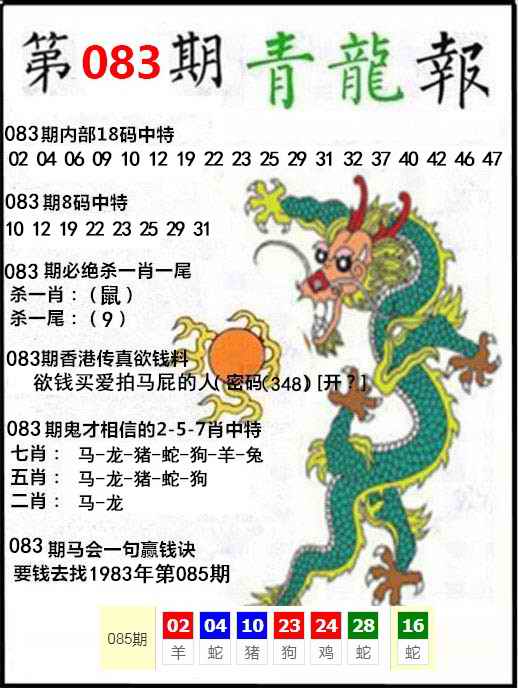 第083期 青龍報
083期内部18码中特
02 04 06 09 10 12 19 22 23 25 29 31 32 37 40 42 46 47
083期8码中特
10 12 19 22 23 25 29 31
083 期必绝杀一肖一尾
杀一肖：（鼠）
杀一尾：（9）
083期香港传真欲钱料
欲钱买爱拍马屁的人(密码(348)[开?]
083期鬼才相信的2-5-7肖中特
七肖： 马-龙-猪-蛇-狗-羊-兔
五肖： 马-龙-猪-蛇-狗
二肖： 马-龙
083 期马会一句赢钱诀
要钱去找1983年第085期
085期 02 04 10 23 24 28 16
羊 蛇 猪 狗 鸡 蛇 蛇